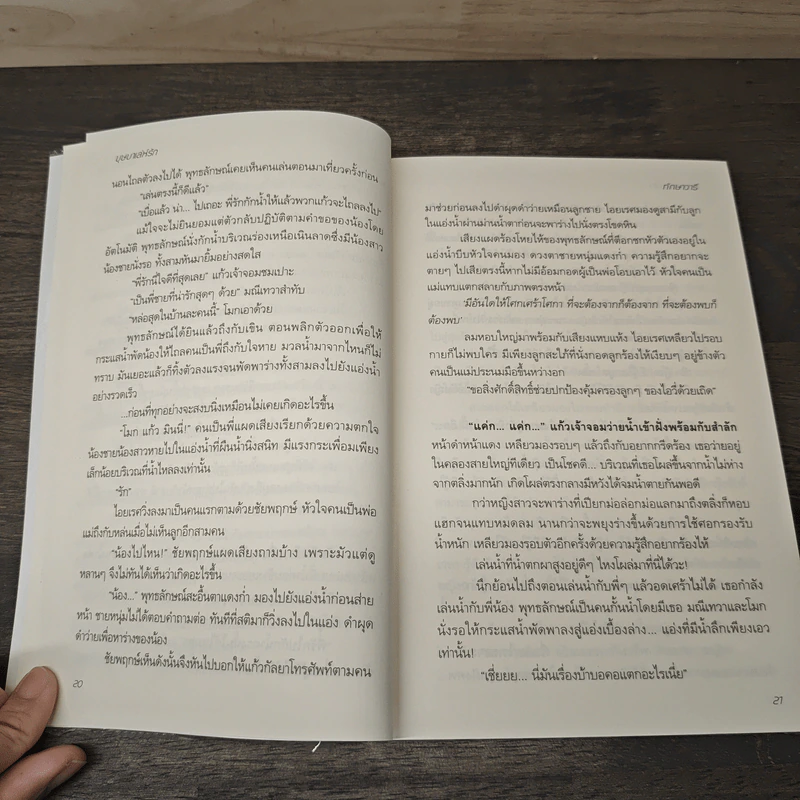 บุษบาเสี่ยงรัก
นอนไถลตัวลงไปได้ พุทธลักษณ์เคยเห็นคนเล่นตอนมาเที่ยวครั้งก่อน
"เล่นตรงนี้ก็ดีแล้ว"
"เบื่อแล้ว น่า... ไปเถอะ พี่รักกักน้ำให้แล้วพวกแก้วจะไถลลงไป"
แม้ใจจะไม่ยินยอมแต่ตัวกลับปฏิบัติตามคำขอของน้องโดย
อัตโนมัติ พุทธลักษณ์นั่งกักน้ำบริเวณร่องเหนือเนินลาดซึ่งมีน้องสาว
น้องชายนั่งรอ ทั้งสามหันมายิ้มอย่างสดใส
"พี่รักนี่ใจดีที่สุดเลย" แก้วเจ้าจอมชมเปาะ
"เป็นพี่ชายที่น่ารักสุดๆ ด้วย" มณีเทวาสำทับ
"หล่อสุดในบ้านละคนนี้" โมกเอาด้วย
พุทธลักษณ์ได้ยินแล้วถึงกับเขิน ตอนพลิกตัวออกเพื่อให้
กระแสน้ำพัดน้องให้ไถลคนเป็นพี่ถึงกับใจหาย มวลน้ำมาจากไหนก็ไม่
ทราบ มันเยอะแล้วก็ทิ้งตัวลงแรงจนพัดพาร่างทั้งสามลงไปยังแอ่งน้ำ
อย่างรวดเร็ว
...ก่อนที่ทุกอย่างจะสงบนิ่งเหมือนไม่เคยเกิดอะไรขึ้น
"โมก แก้ว มินนี่!" คนเป็นพี่แผดเสียงเรียกด้วยความตกใจ
น้องชายน้องสาวหายไปในแอ่งน้ำที่ผืนน้ำนิ่งสนิท มีแรงกระเพื่อมเพียง
เล็กน้อยบริเวณที่น้ำไหลลงเท่านั้น
"รัก"
ไอยเรศวิ่งลงมาเป็นคนแรกตามด้วยชัยพฤกษ์ หัวใจคนเป็นพ่อ
แม่ถึงกับหล่นเมื่อไม่เห็นลูกอีกสามคน
"น้องไปไหน!" ชัยพฤกษ์แผดเสียงถามบ้าง เพราะมัวแต่ดู
หลานๆ จึงไม่ทันได้เห็นว่าเกิดอะไรขึ้น
"น้อง..." พุทธลักษณ์สะอื้นตาแดงก่ำ มองไปยังแอ่งน้ำก่อนส่าย
หน้า ชายหนุ่มไม่ได้ตอบคำถามต่อ ทันทีที่สติมาก็วิ่งลงไปในแอ่ง ดำผุด
ดำว่ายเพื่อหาร่างของน้อง
ชัยพฤกษ์เห็นดังนั้นจึงหันไปบอกให้แก้วกัลยาโทรศัพท์ตามคน
20
ทักษาวารี
มาช่วยก่อนลงไปดำผุดดำว่ายเหมือนลูกชาย ไอยเรศมองดูสามีกับลูก
ในแอ่งน้ำผ่านม่านน้ำตาก่อนจะพาร่างไปนั่งตรงโขดหิน
เสียงแผดร้องไห้ของพุทธลักษณ์ที่ตีอกชกหัวตัวเองอยู่ใน
แอ่งน้ำบีบหัวใจคนมอง ดวงตาชายหนุ่มแดงก่ำ ความรู้สึกอยากจะ
ตายๆ ไปเสียตรงนี้หากไม่มีอ้อมกอดผู้เป็นพ่อโอบเอาไว้ หัวใจคนเป็น
แม่แทบแตกสลายกับภาพตรงหน้า
'มีอันใดให้โศกเศร้าโศกา ที่จะต้องจากก็ต้องจาก ที่จะต้องพบก็
ต้องพบ'
ลมหอบใหญ่มาพร้อมกับเสียงแหบแห้ง ไอยเรศเหลียวไปรอบ
กายก็ไม่พบใคร มีเพียงลูกสะใภ้ที่นั่งกอดลูกร้องไห้เงียบๆ อยู่ข้างตัว
คนเป็นแม่ประนมมือขึ้นหว่างอก
"ขอสิ่งศักดิ์สิทธิ์ช่วยปกป้องคุ้มครองลูกๆ ของไอวี่ด้วยเถิด"
"แค่ก... แค่ก..." แก้วเจ้าจอมว่ายน้ำเข้าฝั่งพร้อมกับสำลัก
หน้าดำหน้าแดง เหลียวมองรอบๆ แล้วถึงกับอยากกรีดร้อง เธอว่ายอยู่
ในคลองสายใหญ่ทีเดียว เป็นโชคดี... บริเวณที่เธอโผล่ขึ้นจากน้ำไม่ห่าง
จากตลิ่งมากนัก เกิดโผล่ตรงกลางมีหวังได้จมน้ำตายกันพอดี
กว่าหญิงสาวจะพาร่างที่เปียกม่อล่อกม่อแลกมาถึงตลิ่งก็หอบ
แฮกจนแทบหมดลม นานกว่าจะพยุงร่างขึ้นด้วยการใช้ศอกรองรับ
น้ำหนัก เหลียวมองรอบตัวอีกครั้งด้วยความรู้สึกอยากร้องไห้
เล่นน้ำที่น้ำตกผาสูงอยู่ดีๆ ไหงโผล่มาที่นี่ได้วะ!
นึกย้อนไปถึงตอนเล่นน้ำกับพี่ๆ แล้วอดเศร้าไม่ได้ เธอกำลัง
เล่นน้ำกับพี่น้อง พุทธลักษณ์เป็นคนกั้นน้ำโดยมีเธอ มณีเทวาและโมก
นั่งรอให้กระแสน้ำพัดพาลงสู่แอ่งเบื้องล่าง... แอ่งที่มีน้ำลึกเพียงเอว
เท่านั้น!
"เชี่ยยย... นี่มันเรื่องบ้าบอคอแตกอะไรเนี่ย"
21